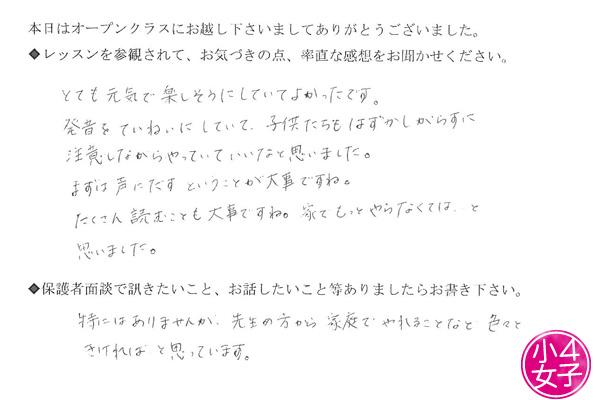 本日はオープンクラスにお越し下さいましてありがとうございました。
◆レッスンを参観されて、お気づきの点、率直な感想をお聞かせください。
とても元気で楽しそうにしていてよかったです。
発音をていねいにしていて、子供たちもはずかしがらずに
注意しながらやっていていいなと思いました。
まずは声にだすということが大事ですね。
たくさん読むことも大事ですね。家でもっとやらなくては、と
思いました。
◆保護者面談で訊きたいこと、お話したいこと等ありましたらお書き下さい。
特にはありませんが、先生の方から家庭でやれることなど色々と
きければと思っています。
小4
女子